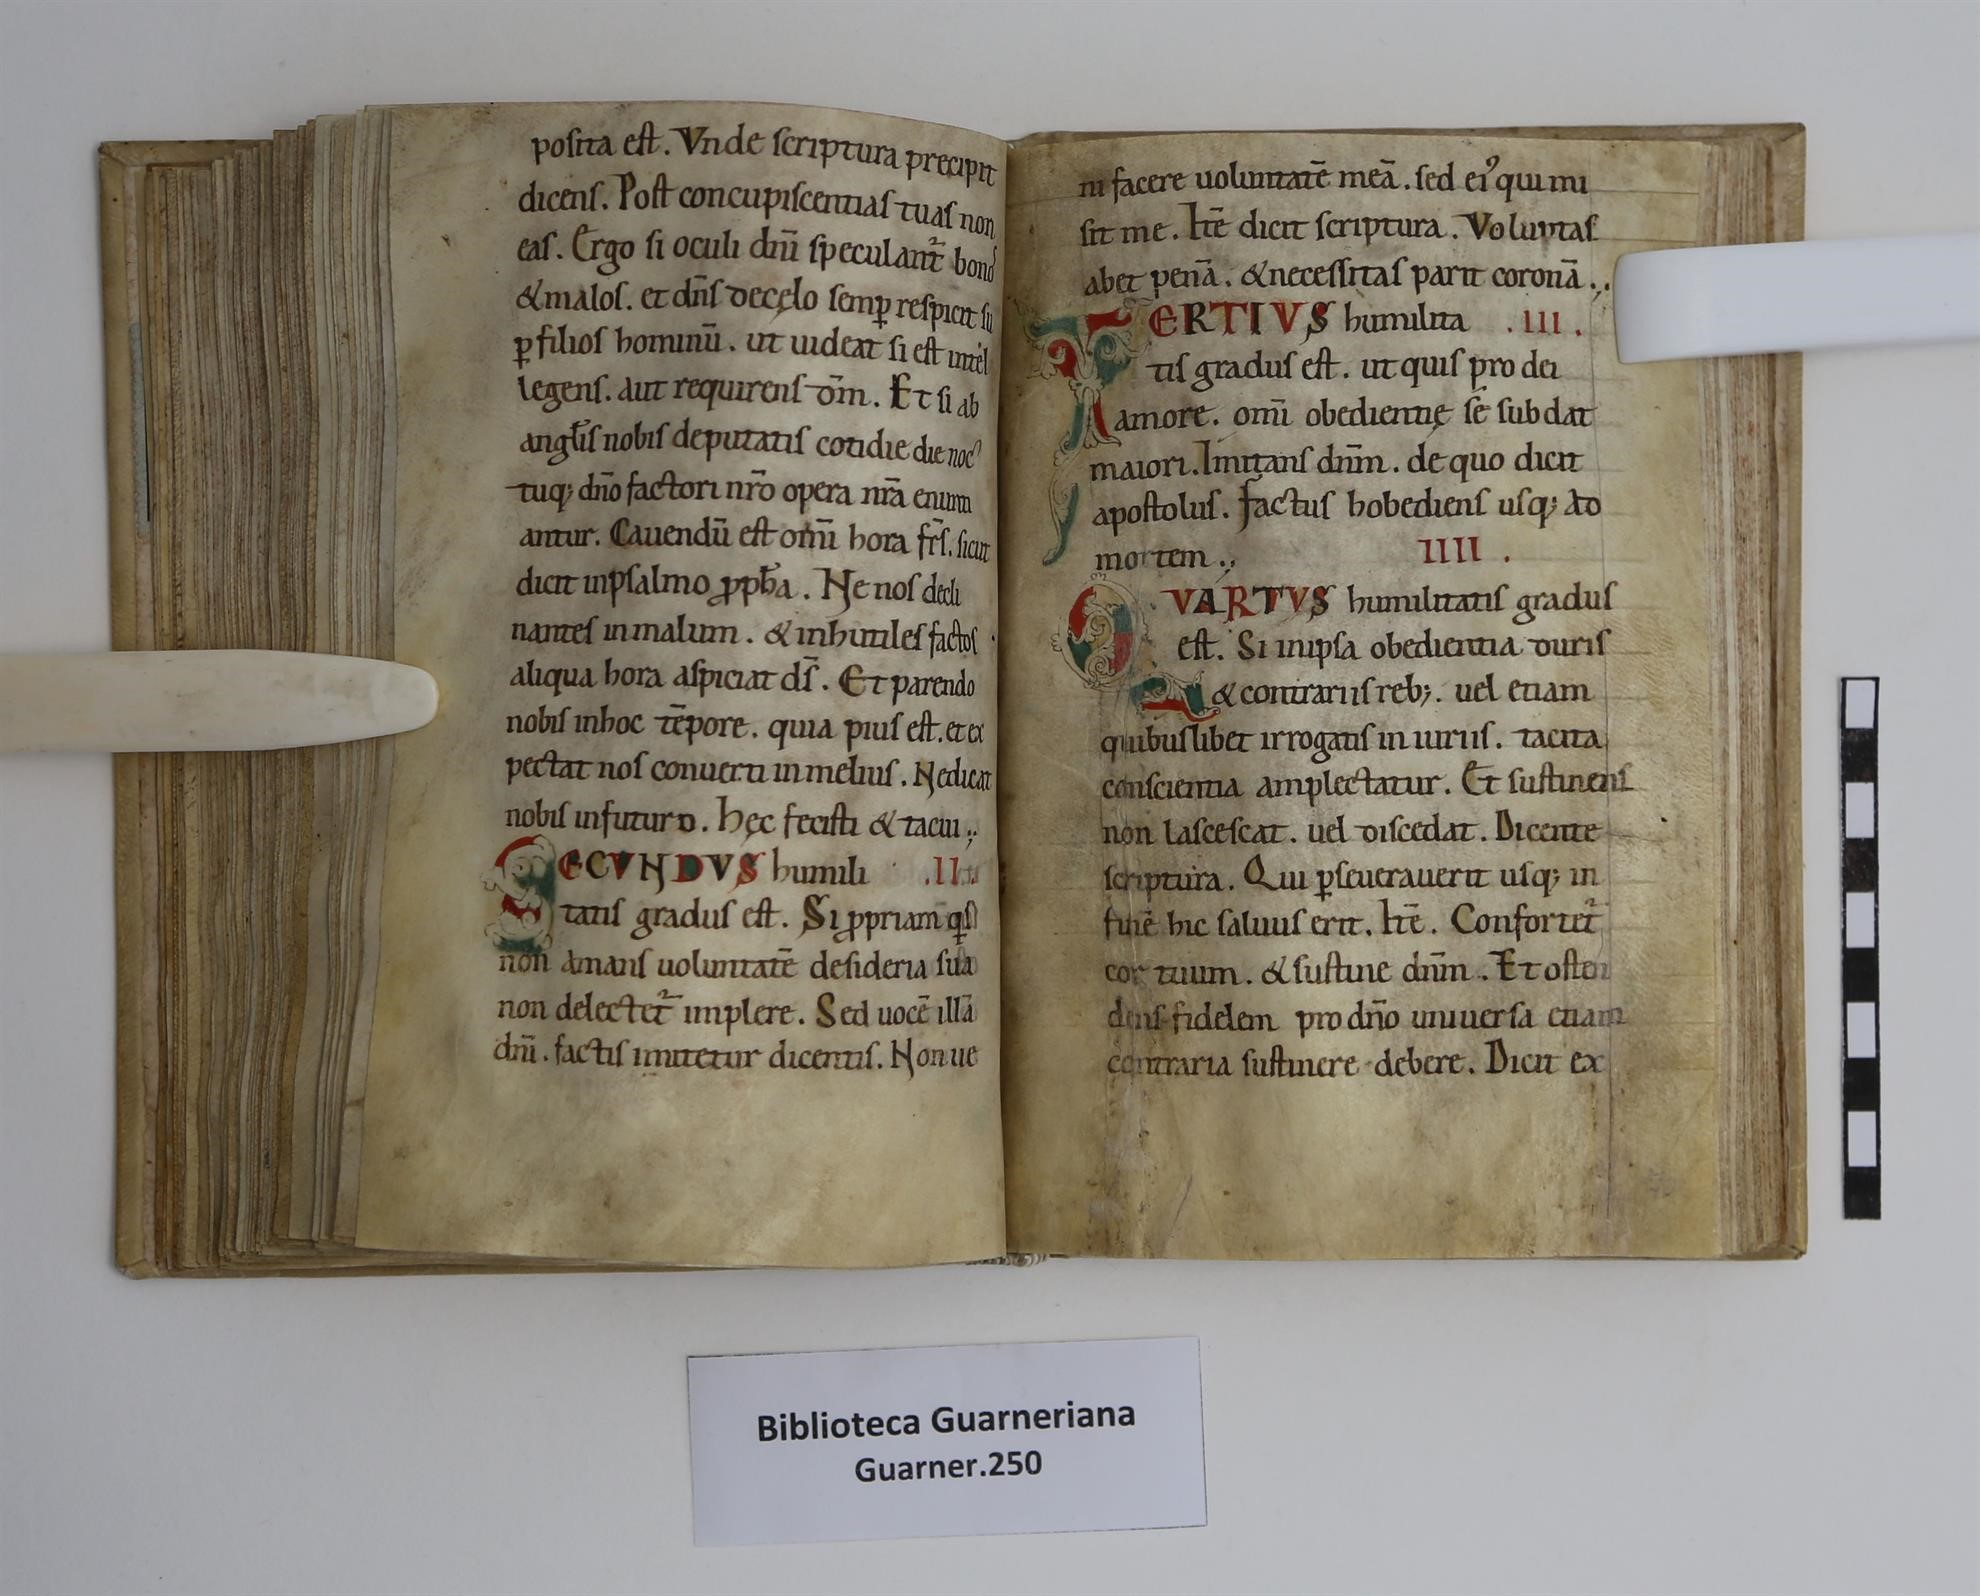 posita est. Vnde scriptura precipit
dicens. Post concupiscentias tuas non
eas. Ergo si oculi dñi speculant̃ bonos
& malos. et dñs de cęlo semꝑ respicit su
ꝑ filios hominū. ut uideat si est intel
legens. aut requirens dm̄. Et si ab
angłis nobis deputatis cotidie die noc
tuq; dño factori nr̄o opera nr̄a enunti
antur. Cauendū est om̄i hora fr̄s. sicut
dicit in psalmo ꝓpħa. Ne nos decli
nantes in malum. & inhutiles factos
aliqua hora aspiciat ds̄. Et parendo
nobis in hoc tēpore. quia pius est. et ex
pectat nos conuerti in melius. Ne dicat
nobis in futuro. Hęc fecisti & tacui.,
SECVNDVS humili .II.
tatis gradus est. Si ꝓpriam qⁱs
non amans uoluntatē desideria sua
non delectet̃ implere. Sed uocē illā
dñi. factis imitetur dicentis. Non ue
ni facere uoluntatē meā. sed eiꝰ qui mi
sit me. Itē dicit scriptura. Voluptas
abet penā. & necessitas parit coronā.,
TERTIVS humilita .III.
tis gradus est. ut quis pro dei
amore. om̄i obedientię se subdat
maiori. Imitans dñm. de quo dicit
apostolus. Factus hobediens usq; ad
mortem., IIII.
QVARTVS humilitatis gradus
est. Si in ipsa obedientia duris
& contrariis reb;. uel etiam
quibuslibet irrogatis iniuriis. tacita
conscientia amplectatur. Et sustinens
non lascescat. uel discedat. Dicente
scriptura. Qui ꝑseuerauerit usq; in
finē hic saluus erit. Itē. Confortet̃
cor tuum. & sustine dñm. Et osten
dens fidelem pro dño uniuersa etiam
contraria sustinere debere. Dicit ex
Biblioteca Guarneriana
Guarner.250